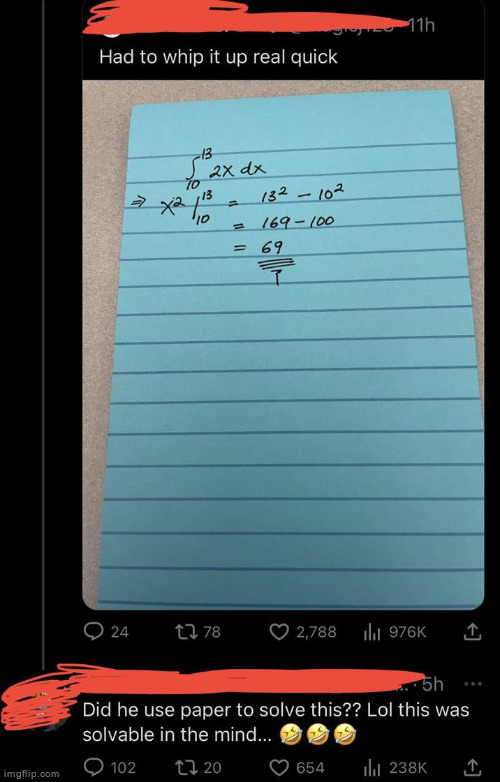 11h
Had to whip it up real quick
∫₁₀¹³ 2x dx
⇒ x² |₁₀¹³ = 13² - 10²
= 169 - 100
= 69
24 78 2,788 976K
5h ...
Did he use paper to solve this?? Lol this was
solvable in the mind... 🤣🤣🤣
102 20 654 238K
imgflip.com